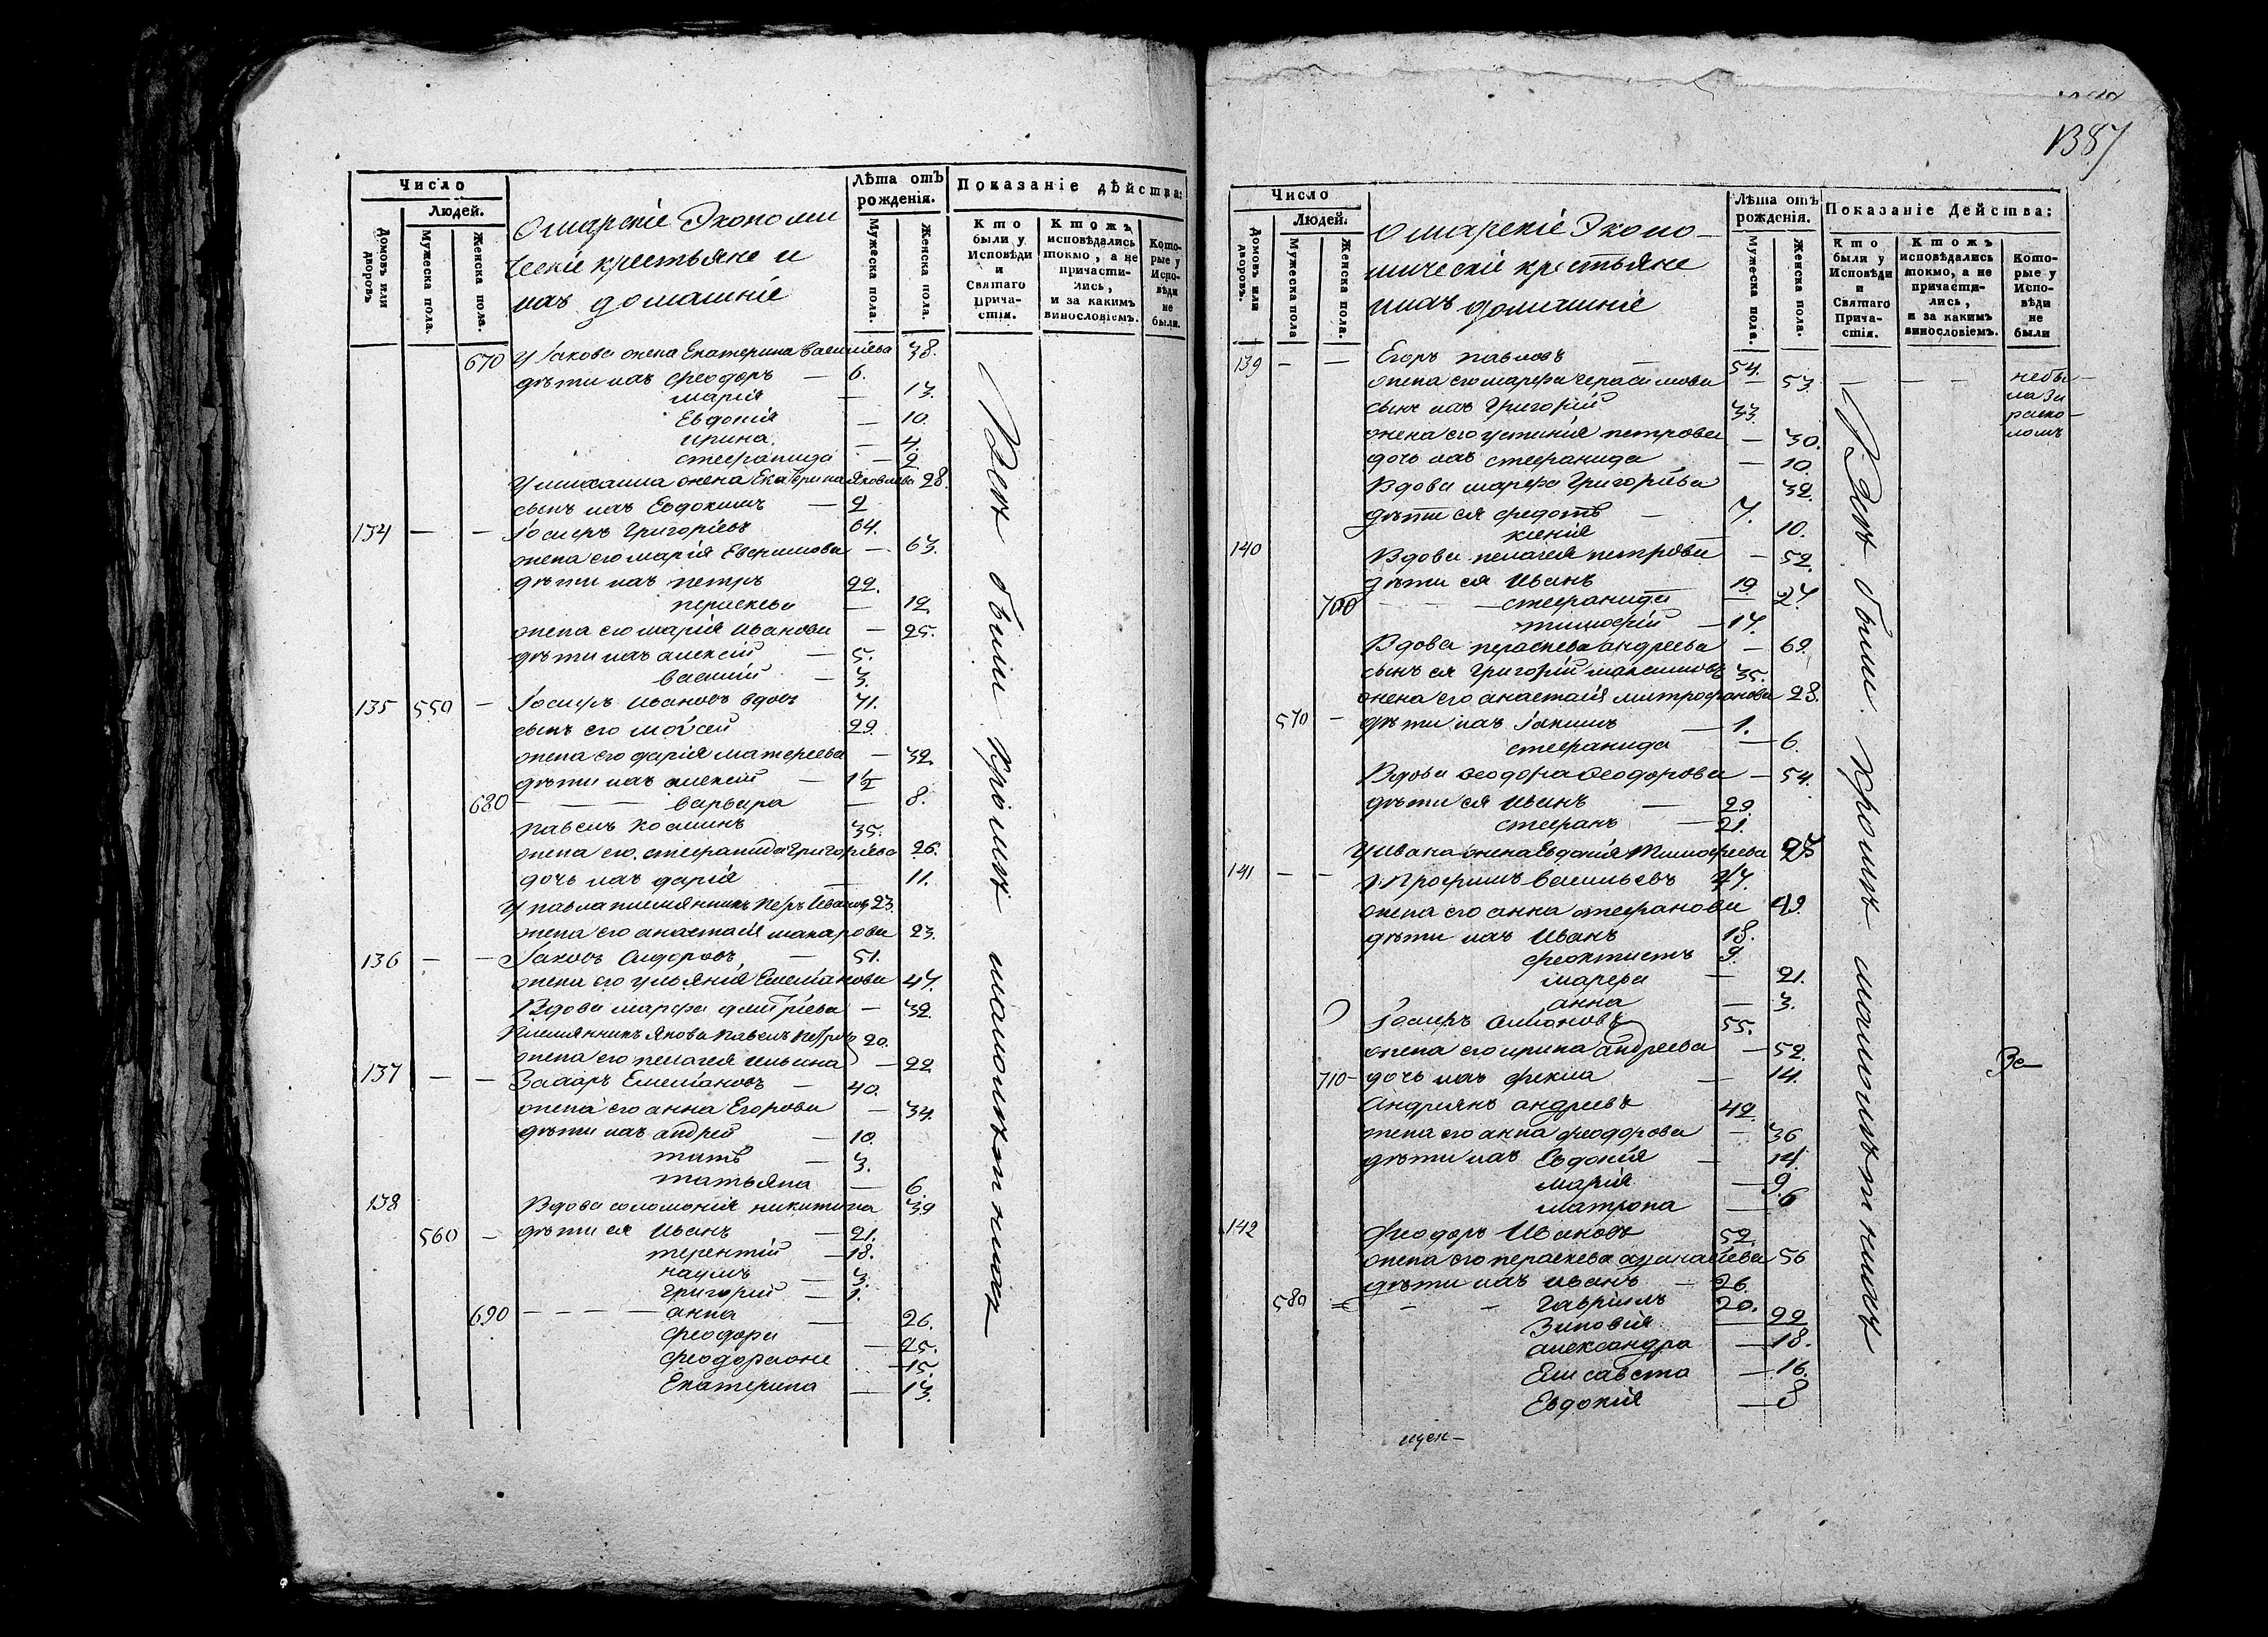 Число
Людей.
Домовъ или дворовъ.
Мужеска пола.
Женска пола.
Экономи
ческіе крестьяне и
ихъ домашніе
Лѣта отъ рожденія.
Мужеска пола.
Женска пола.
Показаніе дѣйства:
Кто были у Исповѣди и Святаго Прича-стія.
Ктожъ исповѣдались токмо, а не причасти-лись, и за какимъ винословіемъ.
Кото-рые у Испо-вѣди не были.
670 У Іакова жена Екатерина Василіева 38.
дѣти ихъ Феодоръ — 6.
Марія — 13.
Евдокія — 10.
Ирина — 4.
Стефанида — 2
У Михаила жена Екатерина Яковлева 28.
сынъ ихъ Евдокимъ — 2
134 — — Іосифъ Григорьевъ 64.
жена его Марія — 63.
дѣти ихъ Петръ 22.
Параскева — 12
жена его Марія Иванова — 25.
дѣти ихъ Алексій — 5.
Василій — 3.
135 550 — Ивановъ вдовъ 71.
сынъ его Моисей 29
жена его Дарія Матфеева — 32
дѣти ихъ Алексій — 1½
680 — — Варвара — 8.
Павелъ Косминъ 35.
жена его Стефанида Григоріева 26.
дочь ихъ Дарія — 11.
У Павла племянникъ Петръ Ивановъ 23.
жена его Анастасія Макарова 23.
136 — — Іаковъ Сидоровъ — 51.
жена его Ульянія Емеліанова 47.
Вдова Марфа Дмитріева — 32
Племянникъ Якова Павелъ Петровъ 20.
жена его Пелагея Ильина — 22
137 — — Захаръ Емеліановъ — 40.
жена его Анна Егорова — 34.
дѣти ихъ Андрей — 10.
Титъ — 3.
Татьяна — 6.
138 Вдова Соломонія Никитина 39
560 — дѣти ея Иванъ — 21.
Терентій — 18.
Наумъ — 3
Григорій — 1.
690 — — — Анна — 26.
Феодора — 25.
— 15.
Екатерина — 13.
Всѣ были кромѣ малолѣтнихъ
1387
Число
Людей.
Домовъ или дворовъ.
Мужеска пола
Женска пола.
Эконо-
мическіе крестьяне
и ихъ домашніе
Лѣта отъ рожденія.
Мужеска пола.
Женска пола.
Показаніе Действа:
Кто были у Исповѣди и Святаго Прича-стія.
Ктожъ исповѣдались токмо, а не причасти-лись, и за какимъ винословіемъ.
Кото-рые у Испо-вѣди не были
139 — — Егоръ Павловъ — 54.
жена его Марфа Герасимова — 53. — — — небы-
ла за
раско-
ломъ
сынъ ихъ Григорій 33.
жена его Устинія Петрова — 30.
дочь ихъ Стефанида — 10.
Вдова Марфа Григорьева 32.
дѣти ея Федотъ — 7.
Ксенія 10.
140 Вдова Пелагея Петрова — 52.
дѣти ея Иванъ 19
700 — — Стефанида — 27.
Тимофей — 17.
Вдова Параскева Андреева — 62
сынъ ея Григорій Максимовъ 35.
жена его Анастасія Митрофанова 28.
570 — дѣти ихъ Іакимъ — 1.
Стефанида — 6.
Вдова Ѳеодора Ѳеодорова — 54.
дѣти ея Иванъ — 29.
Стефанъ — 21.
У Ивана жена Евдокія Тимофеева
141 — — Трофимъ Васильевъ 47.
жена его Анна Стефанова 49.
дѣти ихъ Иванъ 18.
Феоктистъ 9.
Марфа — 21.
Анна — 3.
Іосифъ 55.
жена его Ирина Андреева — 52.
За
710 — дочь ихъ Фекла — 14.
Андреянъ Андреевъ 42
жена его Анна Феодорова — 36
дѣти ихъ Евдокія — 14.
Марія — 9
Матрона — 6
142 Феодоръ Ивановъ 52.
жена его Параскева Афанасіева 56
дѣти ихъ Иванъ — 26.
580 — — Гавріилъ 20.
Зиновія — 22
Александра — 18.
Елисавета — 16.
Евдокія — 8
Всѣ были кромѣ малолѣтнихъ